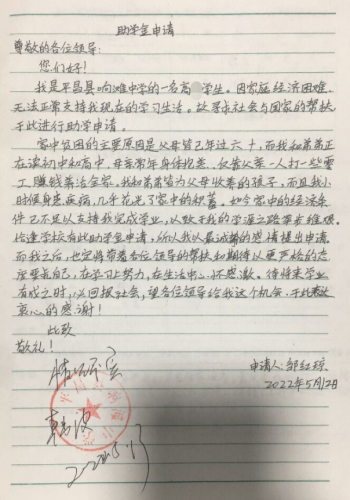 助学金申请
尊敬的各位领导:
您们好!
我是平昌县响滩中学的一名高 学生。因家庭经济困难,
无法正常支持我现在的学习生活。故寻求社会与国家的帮扶,
于此进行助学申请。
家中贫困的主要原因是父母皆已年过六十,而我和弟弟正
在读初中和高中,母亲常年身体抱恙,仅靠父亲一人打一些零
工赚钱养活全家。我和弟弟皆为父母收养的孩子,而且我小
时候身患疾病,几乎花光了家中的积蓄。如今家中的经济条
件已不足以支持我完成学业,以致于我的学涯之路举步维艰。
恰逢学校有此助学金申请,所以我以最诚挚的感情提出申请。
而我之后,也定将带着各位领导的帮扶和期待以更严格的态
度要求自己,在学习上努力,在生活中心怀感激。待将来学业
有成之时,以回报社会,望各位领导给我这个机会,于此表达
衷心的感谢!
此致
敬礼!
情况属实
申请人:邹红琼
2022年5月12日